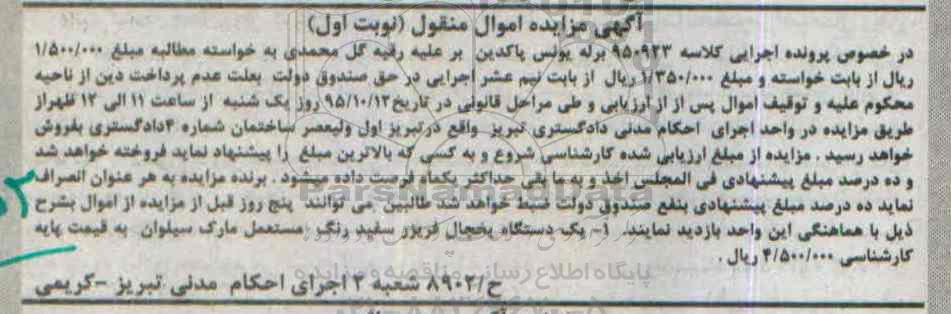 آگهی مزایده اموال منقول (نوبت اول)
در خصوص پرونده اجرایی کلاسه ۹۵۰۹۲۳ برله یونس پاکدین بر علیه رقیه گل محمدی به خواسته مطالبه مبلغ ۱/۵۰۰/۰۰۰
ریال از بابت خواسته و مبلغ ۱/۳۵۰/۰۰۰ ریال از بابت نیم عشر اجرایی در حق صندوق دولت بعلت عدم پرداخت دین از ناحیه
محکوم علیه و توقیف اموال پس از از ارزیابی و طی مراحل قانونی در تاریخ ۹۵/۱۰/۱۲ روز یک شنبه از ساعت ۱۱ الی ۱۲ ظهراز
طریق مزایده در واحد اجرای احکام مدنی دادگستری تبریز واقع درتبریز اول ولیعصر ساختمان شماره ۲دادگستری بفروش
خواهد رسید . مزایده از مبلغ ارزیابی شده کارشناسی شروع و به کسی که بالاترین مبلغ را پیشنهاد نماید فروخته خواهد شد
و ده درصد مبلغ پیشنهادی فی المجلس اخذ و به ما بقی حداکثر یکماه فرصت داده میشود . برنده مزایده به هر عنوان انصراف
نماید ده درصد مبلغ پیشنهادی بنفع صندوق دولت ضبط خواهد شد طالبین می توانند پنج روز قبل از مزایده از اموال بشرح
ذیل با هماهنگی این واحد بازدید نمایند. ۱- یک دستگاه یخچال فریزر سفید رنگ مستعمل مارک سیلوان به قیمت پایه
کارشناسی ۴/۵۰۰/۰۰۰ ریال .
ح/۸۹۰۲ شعبه ۲ اجرای احکام مدنی تبریز -کریمی
ParsNamadData
پایگاه اطلاع رسانی مناقصه و مزایده